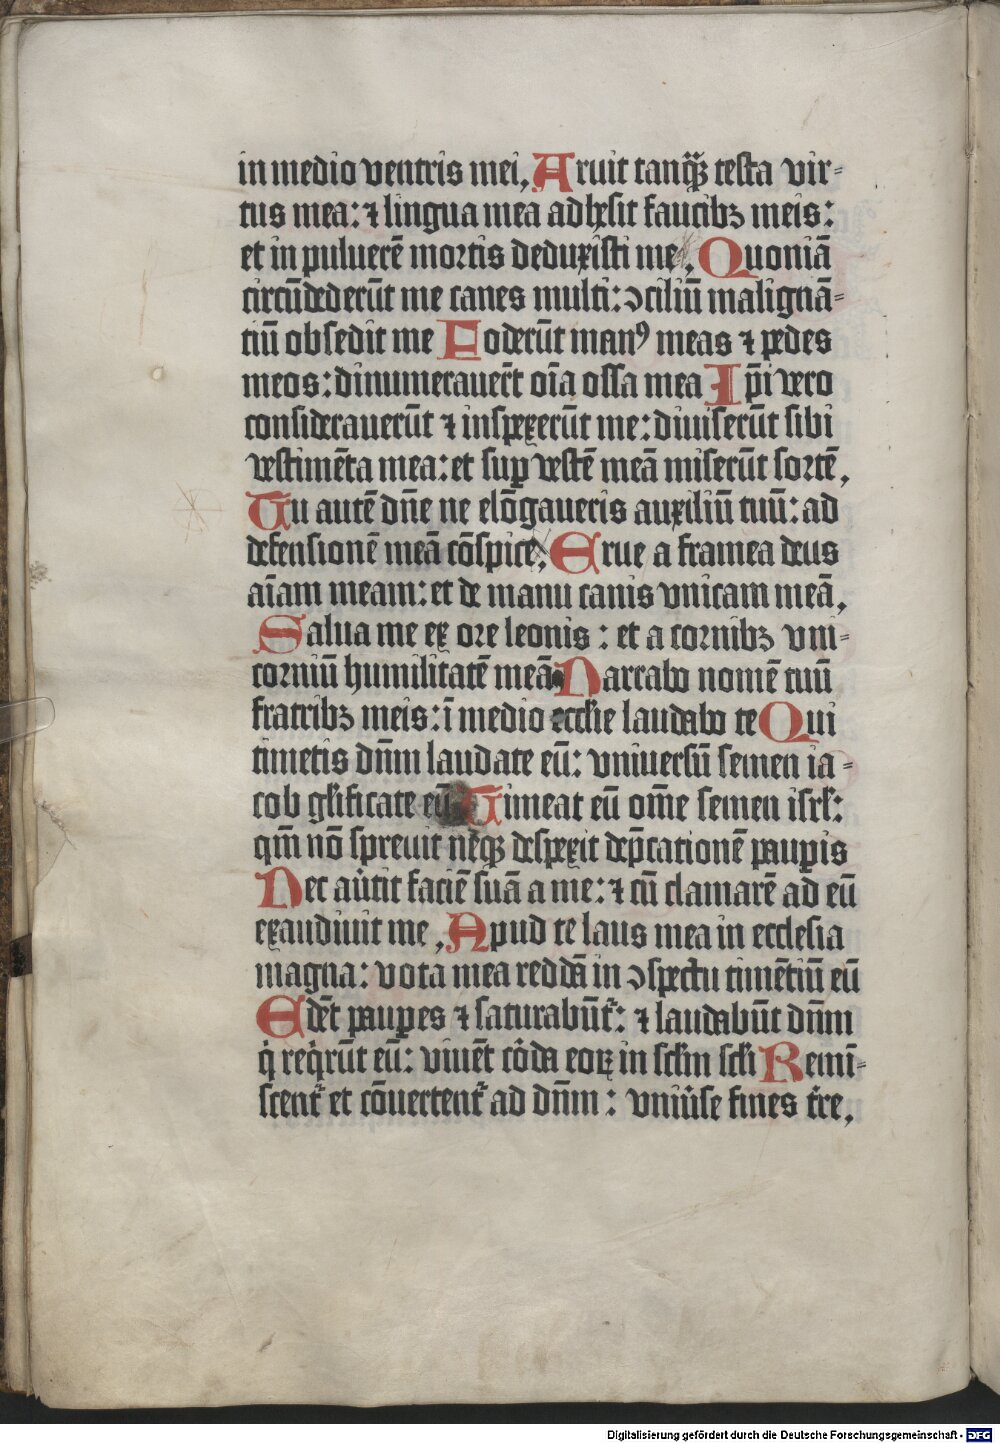 in medio ventris mei, Aruit tanq̄ꝫ testa vir⸗
tus mea: ⁊ lingua mea adhesit faucibꝫ meis:
et in puluerē mortis deduxisti me, Quoniā
circūdederūt me canes multi: ↄciliū malignā⸗
tiū obsedit me Foderūt manꝰ meas ⁊ pedes
meos: dinumerauer̄t oīa ossa mea Ip̄i vero
considerauerūt ⁊ inspexerūt me: diuiserūt sibi
vestimēta mea: et suꝑ vestē meā miserūt sortē,
Tu autē dn̄e ne elōgaueris auxiliū tuū: ad
defensionē meā cōspice, Erue a framea deus
aīam meam: et de manu canis vnicam meā,
Salua me ex ore leonis: et a cornibꝫ vni⸗
corniū humilitatē meā Narrabo nomē tuū
fratribꝫ meis: ī medio eccl̄ie laudabo te Qui
timetis dn̄m laudate eū: vniuersū semen ia⸗
cob gl̄ificate eū Timeat eū om̄e semen isrl̄:
qm̄ nō spreuit neqꝫ despexit dep̄cationē pauꝑis
Nec au̓tit faciē suā a me: ⁊ cū clamarē ad eū
exaudiuit me, Apud te laus mea in ecclesia
magna: vota mea reddā in ↄspectu timētiū eū
Edēt pauꝑes ⁊ saturabūt᷑: ⁊ laudabūt dn̄m
q̇ req̇rūt eū: viuēt co̓da eoꝝ in scl̄m scl̄i Remī⸗
scent᷑ et cōuertent᷑ ad dn̄m: vniu̓se fines t̓re,
Digitalisierung gefördert durch die Deutsche Forschungsgemeinschaft - DFG